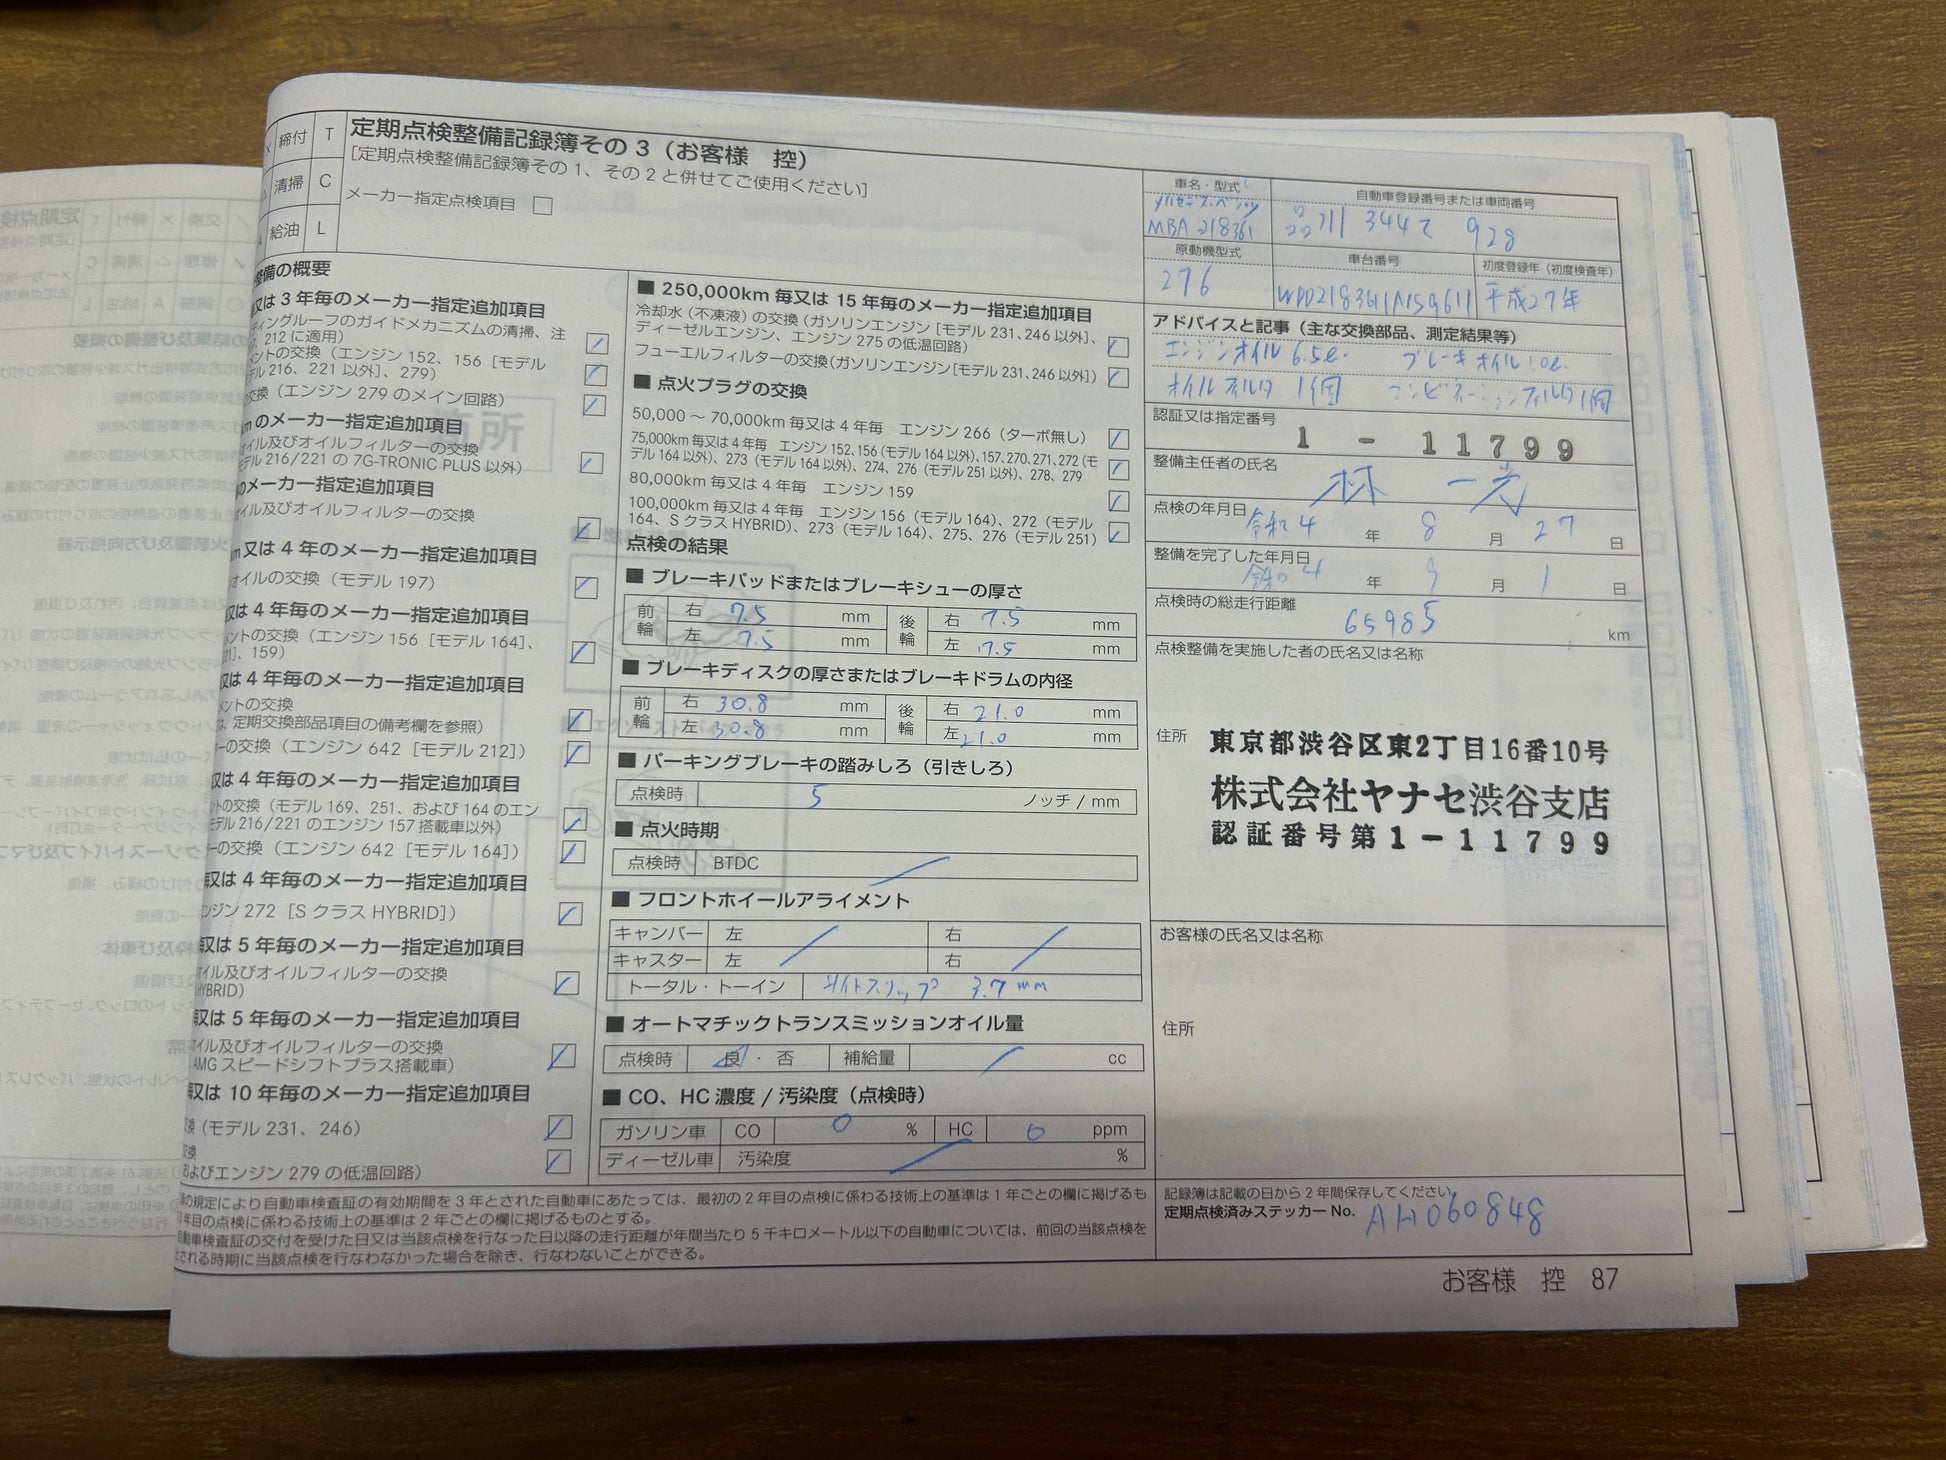 締付 T
清掃 C
給油 L
定期点検整備記録簿その3（お客様 控）
[定期点検整備記録簿その1、その2と併せてご使用ください]
メーカー指定点検項目
整備の概要
又は3年毎のメーカー指定追加項目
ディングルーフのガイドメカニズムの清掃、注
212に適用)
ントの交換（エンジン152、156［モデル
216、221以外]、279）
交換（エンジン279のメイン回路）
kmのメーカー指定追加項目
イル及びオイルフィルターの交換
モデル216/221の7G-TRONIC PLUS以外)
のメーカー指定追加項目
イル及びオイルフィルターの交換
又は4年毎のメーカー指定追加項目
オイルの交換（モデル197）
又は4年毎のメーカー指定追加項目
ントの交換（エンジン156［モデル164]、
159）
又は4年毎のメーカー指定追加項目
ントの交換
定期交換部品項目の備考欄を参照）
ーの交換（エンジン642［モデル212]）
又は4年毎のメーカー指定追加項目
の交換（モデル169、251、および164のエン
モデル216/221のエンジン157搭載車以外）
ーの交換（エンジン642［モデル164]）
又は4年毎のメーカー指定追加項目
ンジン272［SクラスHYBRID]）
又は5年毎のメーカー指定追加項目
イル及びオイルフィルターの交換
HYBRID)
又は5年毎のメーカー指定追加項目
イル及びオイルフィルターの交換
AMGスピードシフトプラス搭載車）
又は10年毎のメーカー指定追加項目
換（モデル231、246）
およびエンジン279の低温回路）
■ 250,000km毎又は15年毎のメーカー指定追加項目
冷却水（不凍液）の交換（ガソリンエンジン［モデル231、246以外]、
ディーゼルエンジン、エンジン275の低温回路）
フューエルフィルターの交換(ガソリンエンジン[モデル231、246以外])
■ 点火プラグの交換
50,000～70,000km毎又は4年毎 エンジン266（ターボ無し）
75,000km毎又は4年毎 エンジン152、156（モデル164以外）、157、270、271、272（モ
デル164以外）、273（モデル164以外）、274、276（モデル251以外）、278、279
80,000km毎又は4年毎 エンジン159
100,000km毎又は4年毎 エンジン156（モデル164）、272（モデル
164、SクラスHYBRID）、273（モデル164）、275、276（モデル251）
点検の結果
■ ブレーキパッドまたはブレーキシューの厚さ
前輪 右 7.5 mm 後輪 右 7.5 mm
左 7.5 mm 左 7.5 mm
■ ブレーキディスクの厚さまたはブレーキドラムの内径
前輪 右 30.8 mm 後輪 右 21.0 mm
左 30.8 mm 左 21.0 mm
■ パーキングブレーキの踏みしろ（引きしろ）
点検時 5 ノッチ / mm
■ 点火時期
点検時 BTDC
■ フロントホイールアライメント
キャンバー 左 右
キャスター 左 右
トータル・トーイン サイドスリップ 3.7 mm
■ オートマチックトランスミッションオイル量
点検時 良・否 補給量 cc
■ CO、HC濃度 / 汚染度（点検時）
ガソリン車 CO 0 % HC 0 ppm
ディーゼル車 汚染度 %
の規定により自動車検査証の有効期間を3年とされた自動車にあたっては、最初の2年目の点検に係わる技術上の基準は1年ごとの欄に掲げるも
年目の点検に係わる技術上の基準は2年ごとの欄に掲げるものとする。
自動車検査証の交付を受けた日又は当該点検を行なった日以降の走行距離が年間当たり5千キロメートル以下の自動車については、前回の当該点検を
される時期に当該点検を行なわなかった場合を除き、行なわないことができる。
車名・型式
メルセデス・ベンツ
MBA 218361
自動車登録番号または車両番号
711 3442 928
原動機型式
276
車台番号
WDD2183611A159611
初度登録年（初度検査年）
平成27年
アドバイスと記事（主な交換部品、測定結果等）
エンジンオイル 6.5ℓ. ブレーキオイル 1.0ℓ.
オイルフィルタ 1個 コンビネーションフィルタ 1個
認証又は指定番号
1 - 11799
整備主任者の氏名
林 一光
点検の年月日
令和4 年 8 月 27 日
整備を完了した年月日
令和4 年 9 月 1 日
点検時の総走行距離
65985 km
点検整備を実施した者の氏名又は名称
住所 東京都渋谷区東2丁目16番10号
株式会社ヤナセ渋谷支店
認証番号第1-11799
お客様の氏名又は名称
住所
記録簿は記載の日から2年間保存してください。
定期点検済みステッカーNo. AH060848
お客様 控 87